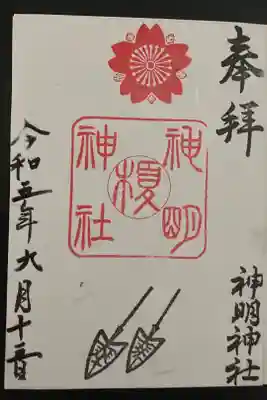 奉拝
神明神社
神明
榎
神社
令和五年九月十